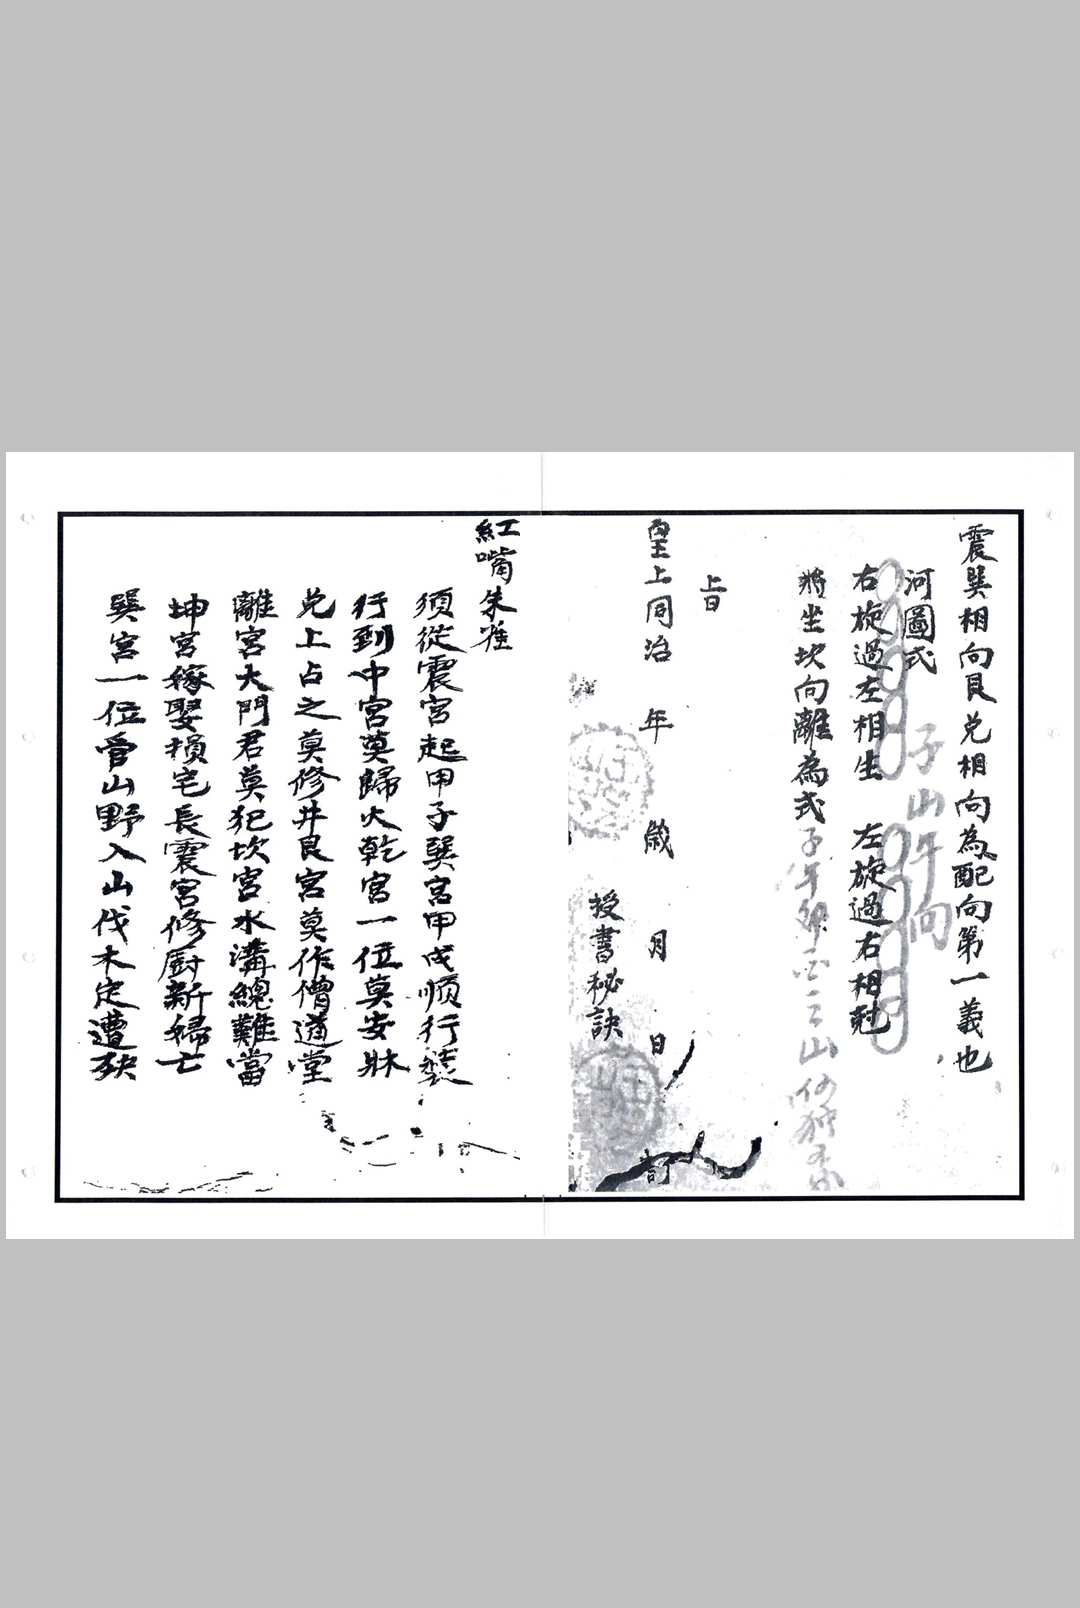 震巽相向艮兑相向為配向第一義也
河圖式
子山午向
右旋過左相生　左旋過右相尅
將坐坎向離為式
旨
皇上同治　年　歲　月　日　訂
授書秘訣
紅嘴朱雀
須從震宮起甲子巽宮甲戌順行裝
行到中宮莫歸火乾宮一位莫安牀
兑上占之莫修井艮宮莫作僧道堂
離宮大門君莫犯坎宮水溝總難當
坤宮嫁娶損宅長震宮修廚新婦亡
巽宮一位管山野入山伐木定遭殃